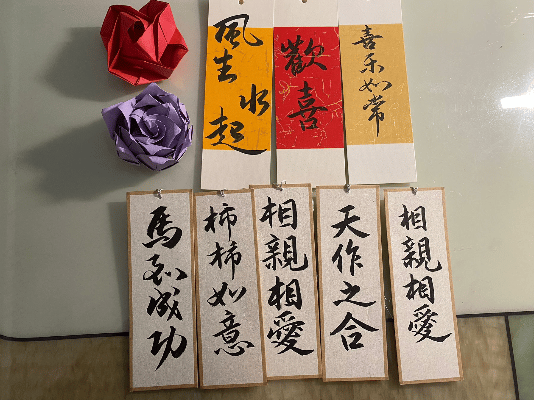 風生水起
歡喜
喜樂如常
馬到成功
柿柿如意
相親相愛
天作之合
相親相愛